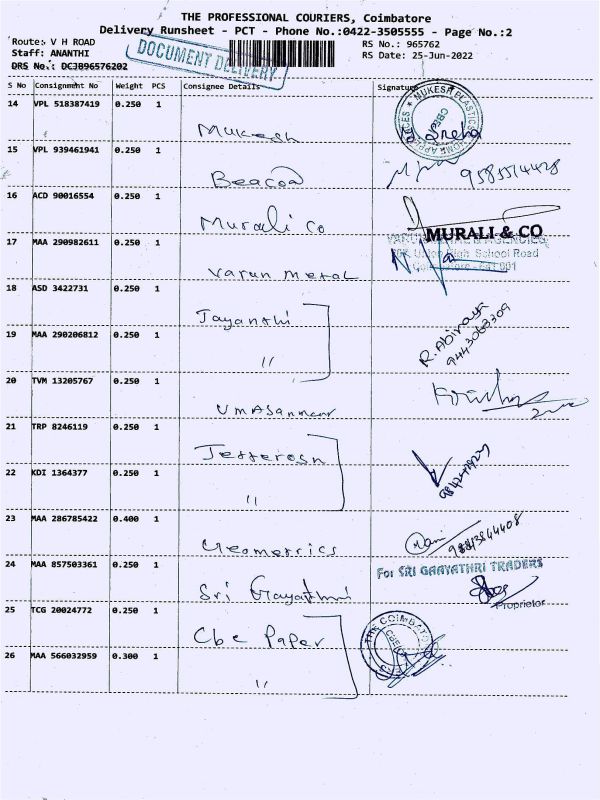 THE PROFESSIONAL COURIERS, Coimbatore
Delivery Runsheet - PCT - Phone No.:0422-3505555 - Page No.:2
Route: V H ROAD
Staff: ANANTHI
DRS No.: DCJB96576202
DOCUMENT DELIVERY
RS No.: 965762
RS Date: 25-Jun-2022
S No Consignment No Weight PCS Consignee Details Signature
14 VPL 518387419 0.250 1 Mukesh
15 VPL 939461941 0.250 1 Beacon 9585514428
16 ACD 90016554 0.250 1 Murali Co MURALI & CO
17 MAA 290982611 0.250 1 Varun Metal
High School Road
18 ASD 3422731 0.250 1 Jayanthi
R. Abinaya
9443068309
19 MAA 290206812 0.250 1 "
20 TVM 13205767 0.250 1
21 TRP 8246119 0.250 1 Jefferosn
22 KDI 1364377 0.250 1 "
23 MAA 286785422 0.400 1 Geometrics Mani
24 MAA 857503361 0.250 1 Sri Gayathri
For SRI GAAYATHRI TRADERS
Proprietor
25 TCG 20024772 0.250 1 Cbe Paper
26 MAA 566032959 0.300 1 "